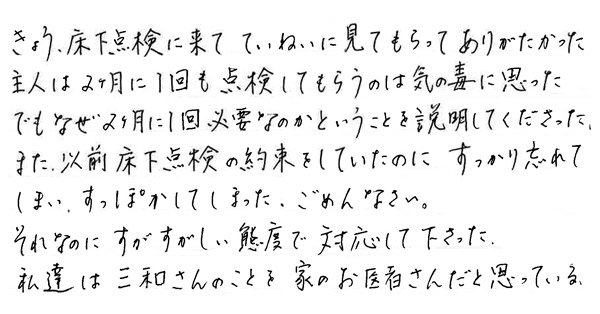 きょう、床下点検に来て ていねいに見てもらって ありがたかった
主人は2ヶ月に1回も点検してもらうのは気の毒に思った
でもなぜ2ヶ月に1回必要なのかということを説明してくださった、
また、以前床下点検の約束をしていたのに すっかり忘れて
しまい、すっぽかしてしまった、ごめんなさい。
それなのに すがすがしい態度で対応して下さった、
私達は三和さんのことを家のお医者さんだと思っている、